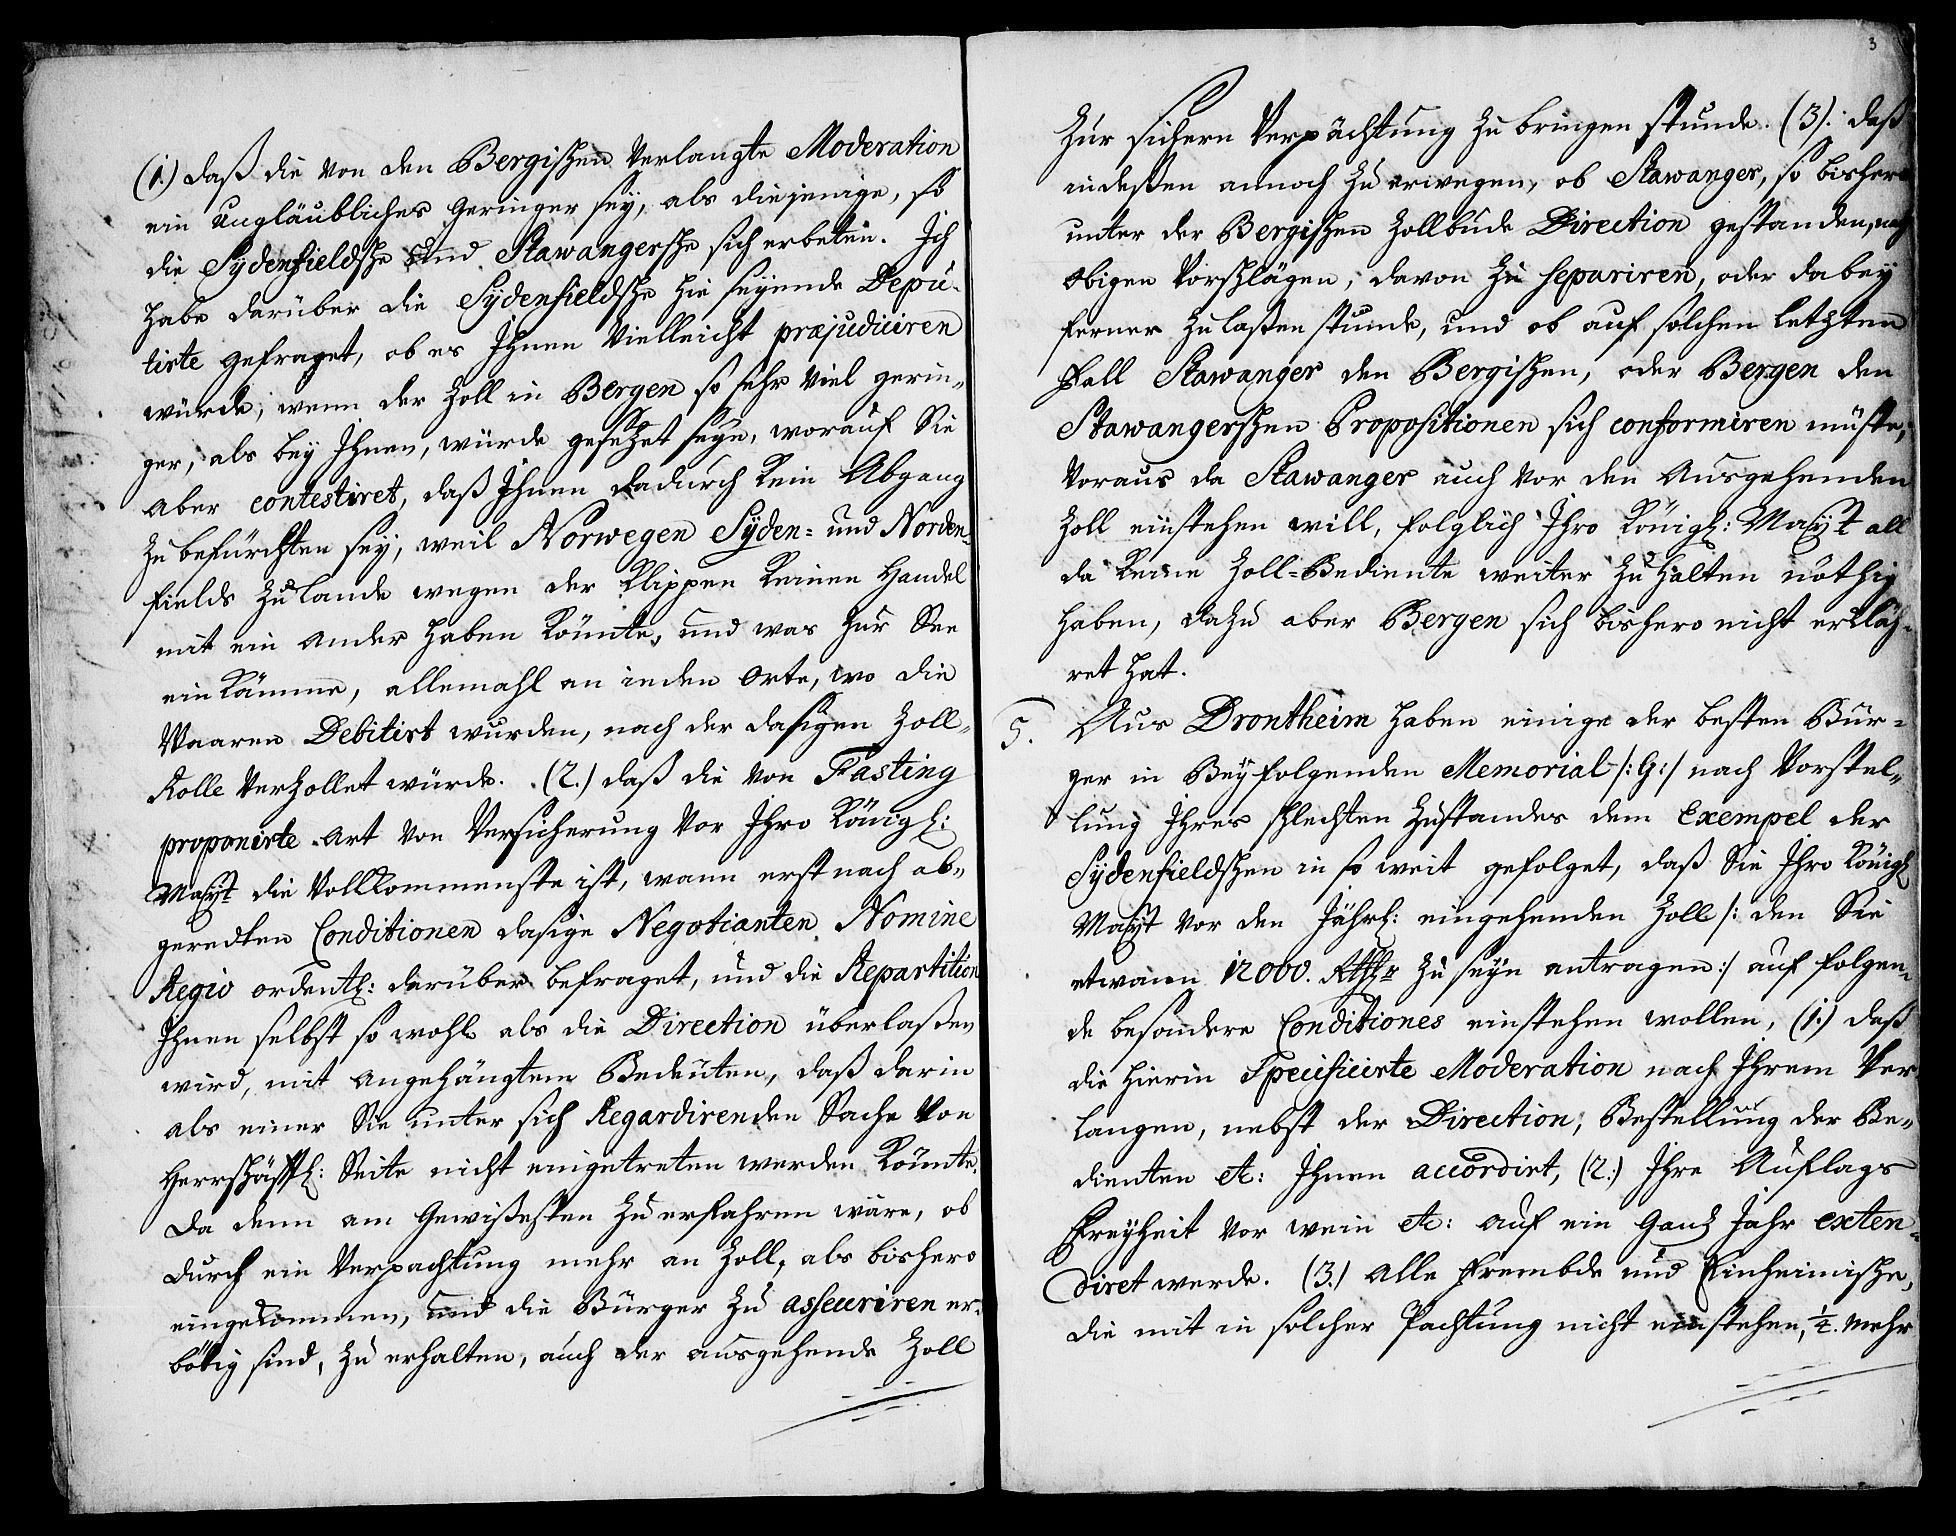 (1.) daß die von den Bergischen verlangte Moderation
ein ungläubliches geringer sey, als diejenige, so
die Sÿdenfieldsche und Stawangersche sich erbeten. Ich
habe darüber die Sÿdenfieldsche hie seyende Depu-
tirte gefraget, ob es Ihnen vielleicht præjudiciren
würde, wenn der Zoll in Bergen so sehr viel gerin-
ger, als bey Ihnen, würde gesetzet seyn, worauf Sie
aber contestiret, daß Ihnen dadurch kein Abgang
zu befürchten sey, weil Norwegen Sÿden- und Norden-
fields zu lande wegen der Klippen keinen Handel
mit ein ander haben könnte, und was zur See
ein käme, allemahl an ieden Orte, wo die
Waaren Debitirt wurden, nach der dasigen Zoll-
Rolle verzollet würde. (2.) daß die von Fasting
proponirte Art von Versicherung vor Ihro Königl:
Mayt die vollkommenste ist, wann erst nach ab-
geredten Conditionen dasige Negotianten Nomine
Regio ordentl: darüber befraget, und die Repartition
Ihnen selbst so wohl als die Direction überlaßen
wird, mit angehängtem Bedeuten, daß darin
als einer Sie unter sich Regardirenden Sache von
Herrschäfftl: Seite nicht eingetreten werden könnte.
Da denn am gewißesten zu erfahren wäre, ob
durch ein Verpachtung mehr an Zoll, als bishero
eingekommen, und die Bürger zu assecuriren er-
bötig sind, zu erhalten, auch der ausgehende Zoll
3
zur sichern Verpachtung zu bringen stunde. (3). daß
indeßen annoch zu erwegen, ob Stawanger, so bishero
unter der Bergischen Zollbude Direction gestanden, nach
obigen Vorschlägen, davon zu separiren, oder dabey
ferner zu laßen stunde, und ob auf solchen letzten
Fall Stawanger den Bergischen, oder Bergen den
Stawangerschen Propositionen sich conformiren müste,
voraus da Stawanger auch vor den ausgehenden
Zoll einstehen will, folglich Ihro Königl: Mayt all
da keine Zoll-Bediente weiter zu halten nöthig
haben, dazu aber Bergen sich bishero nicht erkläh-
ret hat.
5. Aus Drontheim haben einige der besten Bür-
ger in Beyfolgenden Memorial /: G :/ nach Vorstel-
lung Ihres schlechten Zustandes dem Exempel der
Sÿdenfieldschen in so weit gefolget, daß Sie Ihro Königl
Mayt vor den Jährl: eingehenden Zoll /: den Sie
etwann 12000. Rthlr zu seyn antragen :/ auf folgen-
de besondere Conditiones einstehen wollen, (1.) daß
die hierin Specificirte Moderation nach Ihrem Ver
langen, nebst der Direction, Bestellung der Be-
dienten etc: Ihnen accordirt, (2.) Ihre Auflags
Freyheit vor wein etc: auf ein gantz Jahr exten-
diret werde. (3.) alle Frembde und Einheimische,
die mit in solcher Pachtung nicht einstehen, mehr